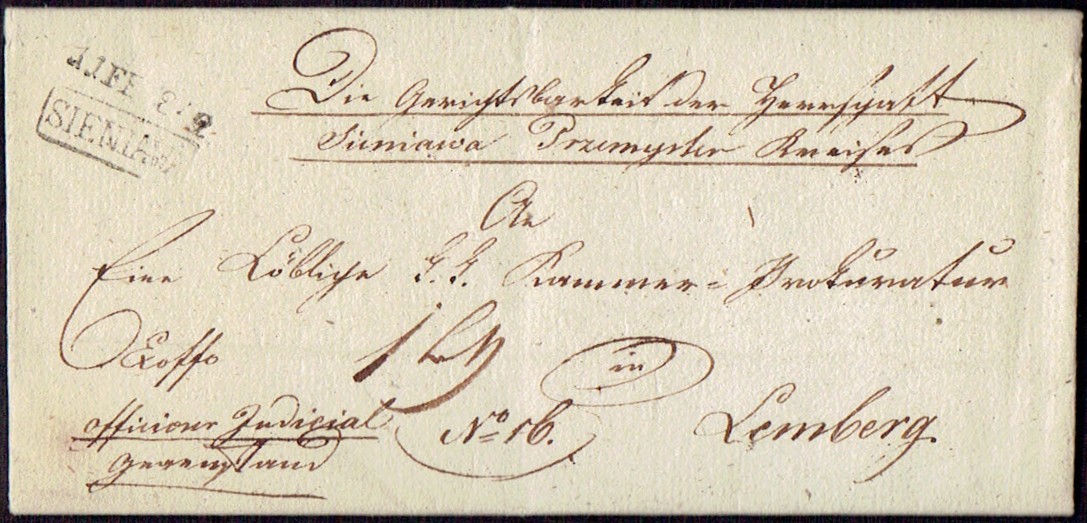 SIENIAWA
Die Gerichtsbarkeit der Herrschaft
Sieniawa Przemysler Kreises
An
Eine Löbliche k.k. Kammer-Prokuratur
Exoffo
in
officioser Judicial
No 16.
Lemberg.
Gegenstand